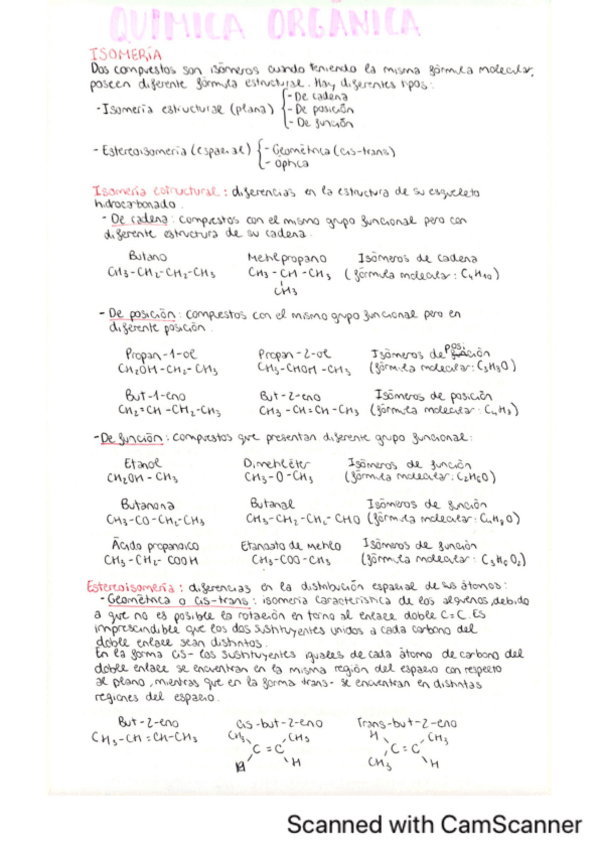 QUIMICA ORGANICA
ISOMERÍA
Dos compuestos son isómeros cuando teniendo la misma fórmula molecular,
poseen diferente fórmula estructural. Hay diferentes tipos:
- Isomería estructural (plana) { - De cadena
- De posición
- De función
- Estereoisomería (espacial) { - Geométrica (cis-trans)
- Óptica
Isomería estructural: diferencias en la estructura de su esqueleto
hidrocarbonado.
- De cadena: compuestos con el mismo grupo funcional pero con
diferente estructura de su cadena.
Butano Metilpropano Isómeros de cadena
CH3-CH2-CH2-CH3 CH3-CH-CH3 (fórmula molecular: C4H10)
CH3
- De posición: compuestos con el mismo grupo funcional pero en
diferente posición.
Propan-1-ol Propan-2-ol Isómeros de posición
CH2OH-CH2-CH3 CH3-CHOH-CH3 (fórmula molecular: C3H8O)
But-1-eno But-2-eno Isómeros de posición
CH2=CH-CH2-CH3 CH3-CH=CH-CH3 (fórmula molecular: C4H8)
- De función: compuestos que presentan diferente grupo funcional:
Etanol Dimetiléter Isómeros de función
CH2OH-CH3 CH3-O-CH3 (fórmula molecular: C2H6O)
Butanona Butanal Isómeros de función
CH3-CO-CH2-CH3 CH3-CH2-CH2-CHO (fórmula molecular: C4H8O)
Ácido propanoico Etanoato de metilo Isómeros de función
CH3-CH2-COOH CH3-COO-CH3 (fórmula molecular: C3H6O2)
Estereoisomería: diferencias en la distribución espacial de sus átomos:
- Geométrica o cis-trans: isomería característica de los alquenos, debido
a que no es posible la rotación en torno al enlace doble C=C. Es
imprescindible que los dos sustituyentes unidos a cada carbono del
doble enlace sean distintos.
En la forma cis- los sustituyentes iguales de cada átomo de carbono del
doble enlace se encuentran en la misma región del espacio con respecto
al plano, mientras que en la forma trans- se encuentran en distintas
regiones del espacio.
But-2-eno Cis-but-2-eno Trans-but-2-eno
CH3-CH=CH-CH3 CH3 CH3 H CH3
C=C C=C
H H CH3 H
Scanned with CamScanner